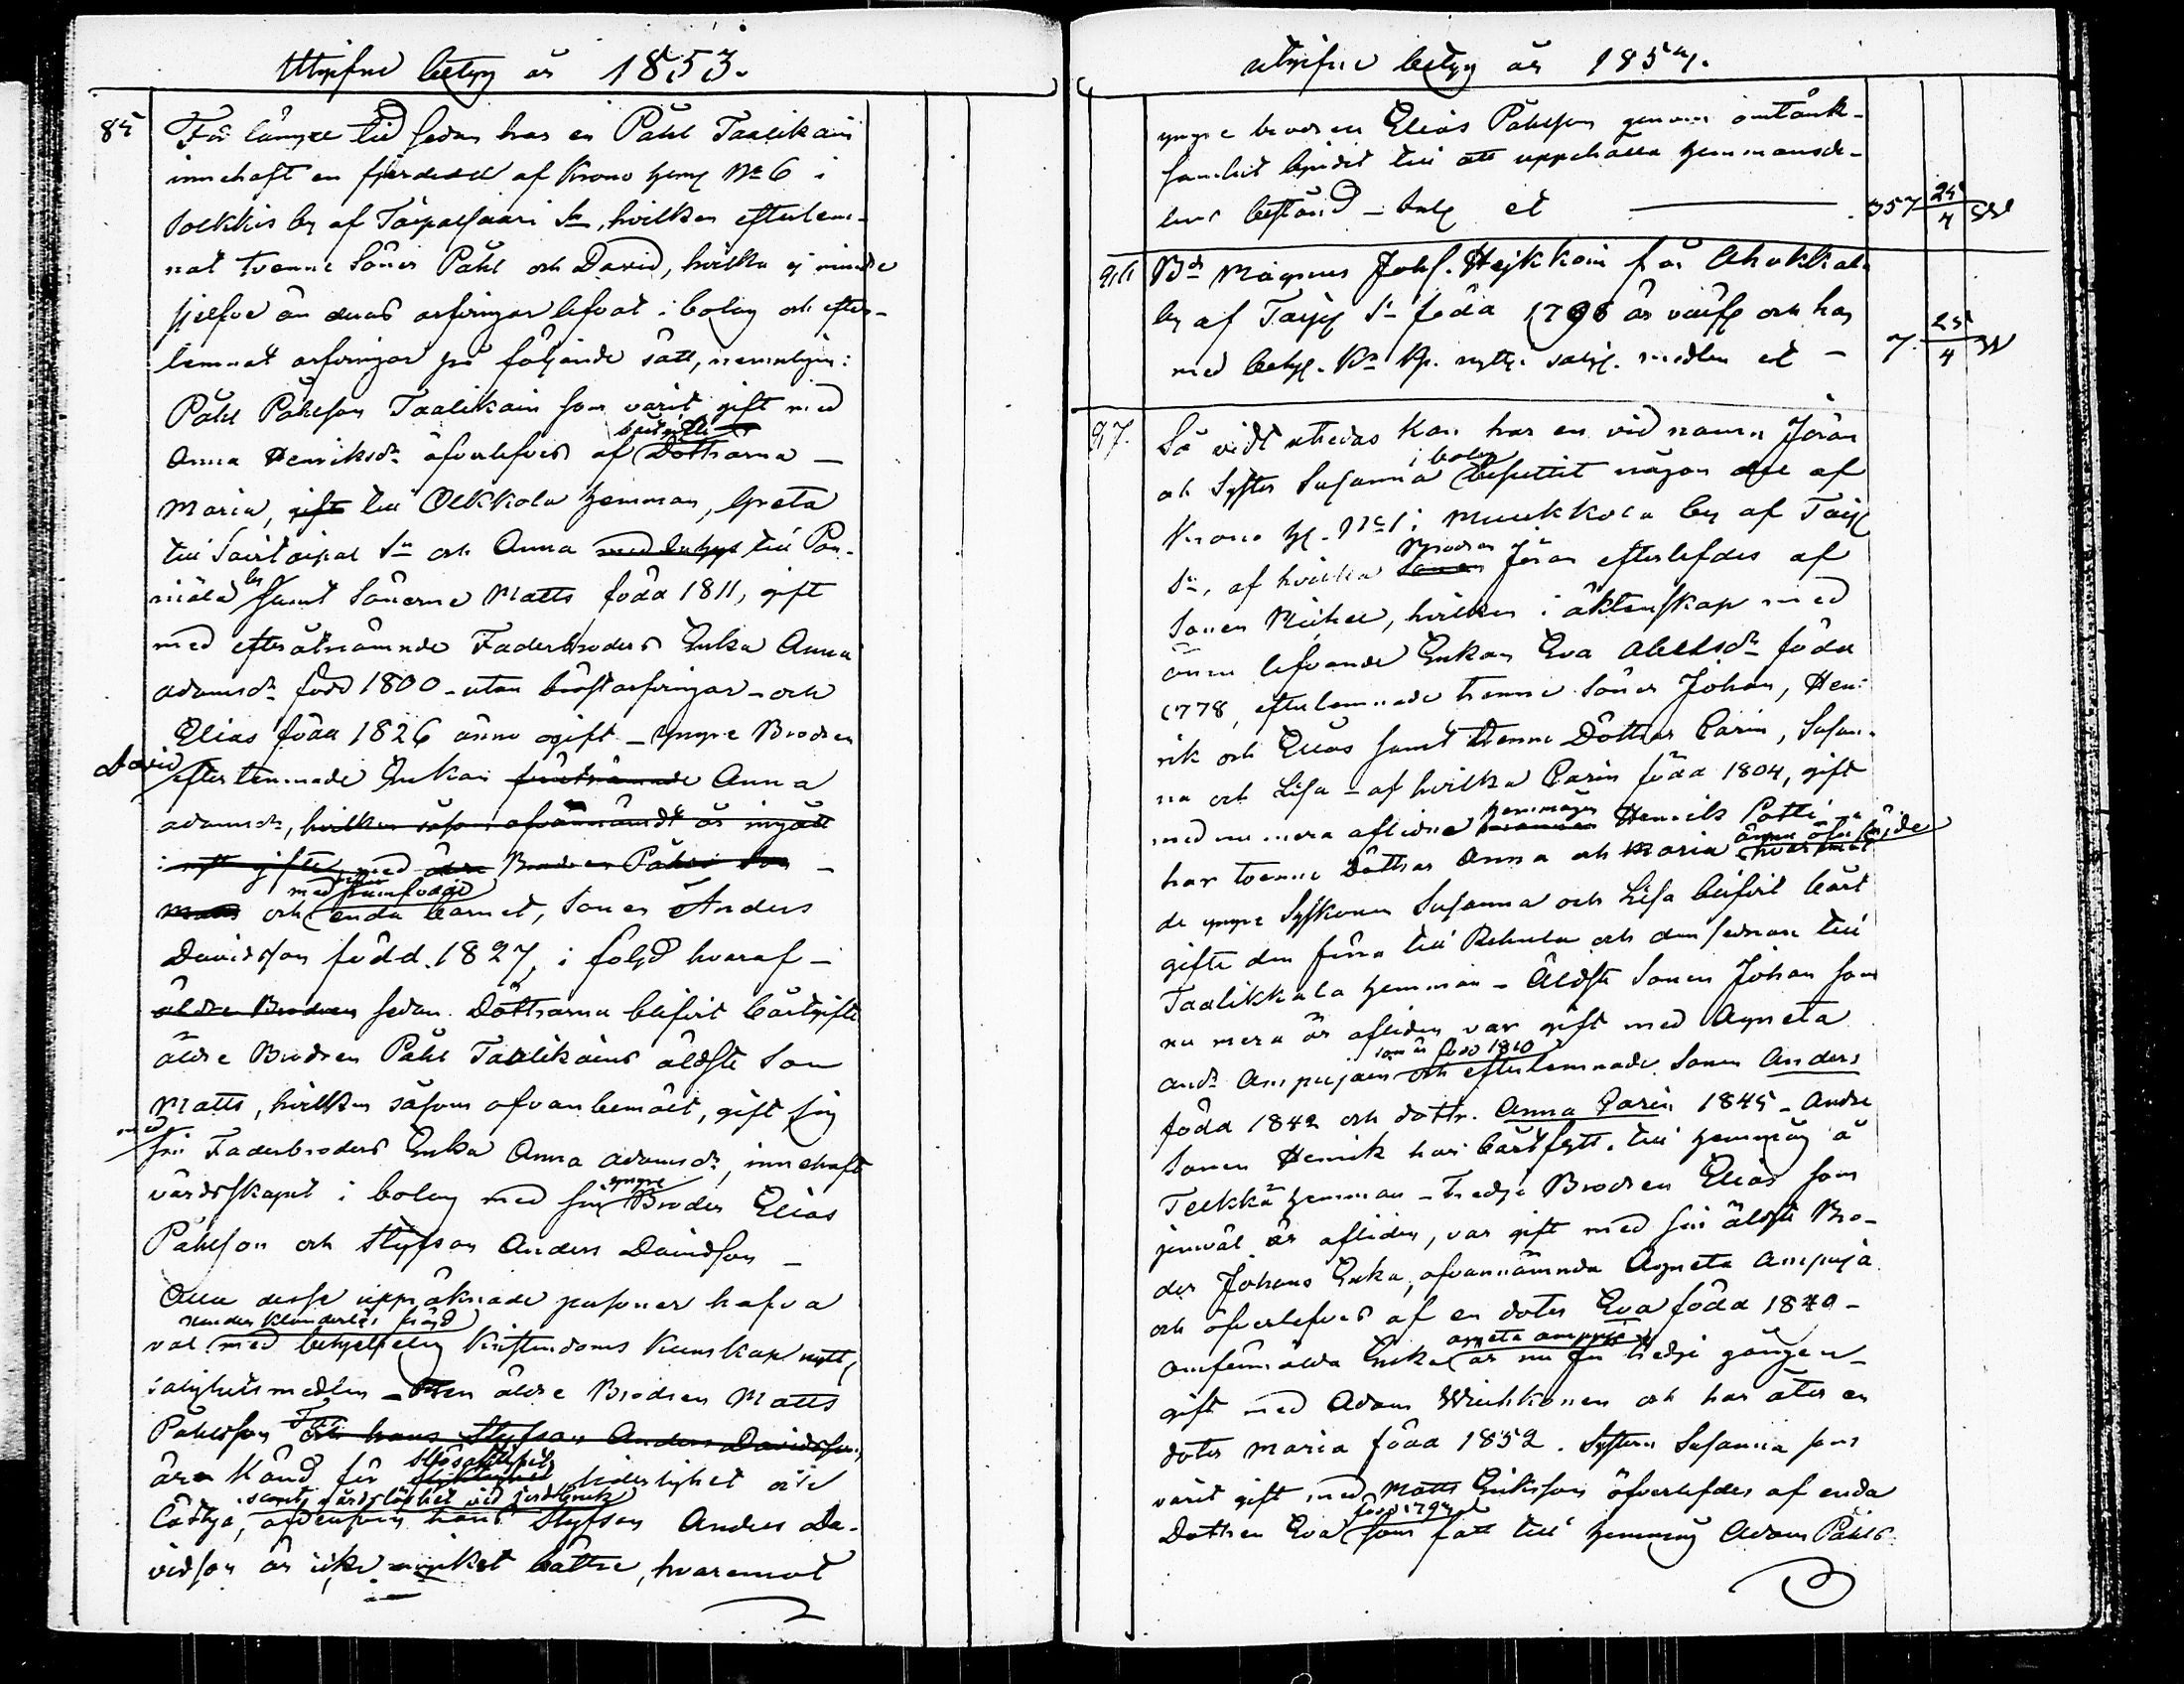 Utgifne betyg år 1853.
85 För längre tid sedan har en Påhl Taalikain
innehaft en fjerdedel af Krono hemn No 6 i
Solkkis by af Taipalsaari Sn, hvilken efterlem-
nat tvenne Söner Påhl och David, hvilka ej mindre
sjelfve än deras arfvingar lefvat i bolag och efter-
lemnat arfvingar på följande sätt, nemnligen:
Påhl Påhlson Taalikain som varit gift med
Anna Henriksdr öfverlefves af bortgifte Döttrarna —
Maria, gift till Olkkola hemman, Greta
till Savitaipal Sn och Anna till Pon-
niälä by samt Sönerne Matts född 1811, gift
med efteråtnämnde Faderbroders Enka Anna
Adamsdr född 1800 – utan bröstarfvingar – och
Elias född 1826 ännu ogift – yngre Brodren
David efterlemnade Enkan förutnämnde Anna
Adamsdr, hvilken såsom ofvannämndt är ingått
i nytt gifte med äldre Brodren Påhls Son —
Matts och med enda barnet, Sonen Anders
Davidsson född 1827, i följd hvaraf —
äldre Brodren sedan Döttrarna blifvit bortgifte
äldre Brodren Påhl Taalikains äldste Son
Matts, hvilken såsom ofvanbemält, gift sig
med sin Faderbroders Enka Anna Adamsdr, innehaft
värdskapet i bolag med sin yngre Broder Elias
Påhlson och Styfson Anders Davidson —
Alla desse uppräknade personer hafva
under klanderlös frägd
val med behjelpelig Kristendoms Kunskap nytt,
salighetsmedlen – Men äldre Brodren Matts
Påhlson och hans Styfson Anders Davidsson,
är känd för liderlighet och
samt vårdslöshet vid jordbruk
lättja, äfvensom hans Styfson Anders Da-
vidson är icke mycket bättre, hvaremot
utgifne betyg år 1854.
yngre brodren Elias Påhlson genom omtänk-
samhet bjudit till att uppehålla hemmansde-
lens bestånd – Intyg et — 357 25/4 W
Bd Magnus Johs. Hejkkain från Ahokkala
by af Taipl Sn född 1796 är väifr och har
med behjl. Kr Kp. nytt salig. medlen et — 7. 25/4 W
97. Så vidt utredas kan har en vid namn Jöran
och Syster Susanna i bolag besuttit någon del af
Krono hn. No 1 i Muukkola by af Taipl
Sn, af hvilka Brodren Jöran efterlefdes af
Sonen Michel, hvilken i äktenskap med
ännu lefvande Enkan Eva Abelsdr född
1778, efterlemnade trenne Söner Johan, Hen-
rik och Elias samt trenne Döttrar Carin, Susan-
na och Lisa – af hvilka Carin född 1804, gift
med nu mera aflidne hemmågen Henrik Potti
har tvenne Döttrar Anna och Maria
de yngre Syskonen Susanna och Lisa blifvit bort
gifte den förra till Rehula och den sednare till
Taalikkala hemman – Äldste Sonen Johan som
nu mera är afliden var gift med Agneta
And: Ampujain som är född 1810 och efterlemnade Sonen Anders
född 1842 och dottr. Anna Carin 1845 – Andre
Sonen Henrik har bortflytt till hemmåg å
Telkkä hemman – Tredje Brodren Elias som
jemväl är afliden, var gift med sin äldste Bro-
ders Johans Enka, ofvannämnda Agneta Ampuja
och öfverlefves af en doter Eva född 1840 –
omförmälda Enka Agneta Ampuja är nu för tredje gången
gift med Adam Wiukkonen och har åter en
doter Maria född 1852. Systern Susanna som
varit gift med Matts Eriksson öfverlefdes af enda
Dottren Eva född 1794 som fått till hemmåg Adam Påhls